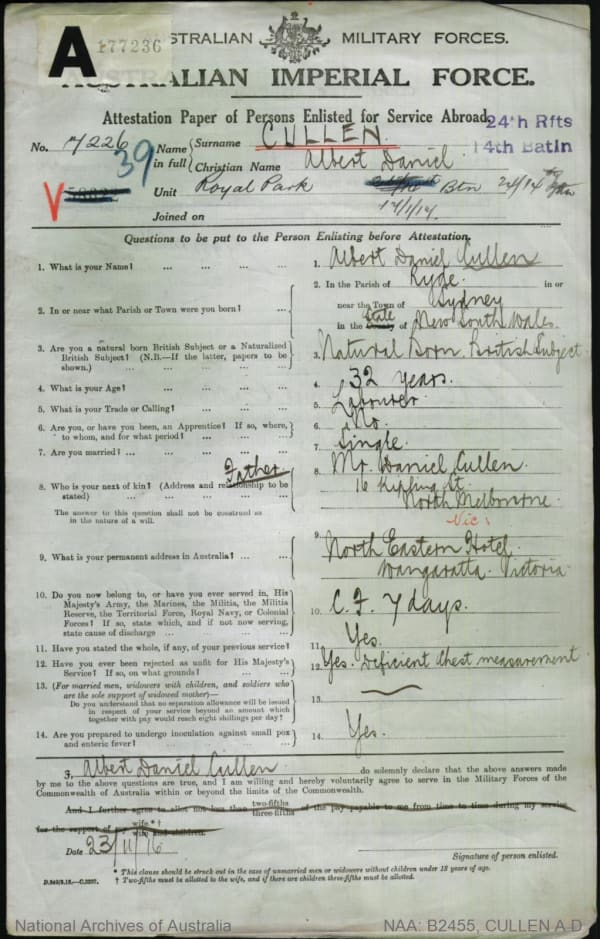 A 177236
AUSTRALIAN MILITARY FORCES.
AUSTRALIAN IMPERIAL FORCE.
Attestation Paper of Persons Enlisted for Service Abroad.
24th Rfts
14th Batln
No. 7226
39
Name in full
Surname CULLEN
Christian Name Albert Daniel
Unit Royal Park Btn 24/14
Joined on 17/1/17.
Questions to be put to the Person Enlisting before Attestation.
1. What is your Name? ... ... ... 1. Albert Daniel Cullen
2. In or near what Parish or Town were you born? ... 2. In the Parish of Ryde. in or
near the Town of Sydney
in the County State of New South Wales.
3. Are you a natural born British Subject or a Naturalized
British Subject? (N.B.—If the latter, papers to be
shown.) ... ... 3. Natural Born British Subject
4. What is your Age? ... ... ... 4. 32 years.
5. What is your Trade or Calling? ... ... 5. Labourer
6. Are you, or have you been, an Apprentice? If so, where,
to whom, and for what period? ... ... ... 6. No.
7. Are you married? ... ... ... ... 7. Single.
8. Who is your next of kin? (Address and relationship to be
stated) ... ... Father 8. Mr. Daniel Cullen.
16 Kipling St.
North Melbourne
Vic:
The answer to this question shall not be construed as
in the nature of a will.
9. What is your permanent address in Australia? ... ... 9. North Eastern Hotel.
Wangaratta. Victoria
10. Do you now belong to, or have you ever served in, His
Majesty's Army, the Marines, the Militia, the Militia
Reserve, the Territorial Force, Royal Navy, or Colonial
Forces? If so, state which, and if not now serving,
state cause of discharge ... ... 10. C. F. 7 days.
11. Have you stated the whole, if any, of your previous service? 11. Yes.
12. Have you ever been rejected as unfit for His Majesty's
Service? If so, on what grounds? ... ... 12. Yes. Deficient Chest measurement
13. (For married men, widowers with children, and soldiers who
are the sole support of widowed mother)—
Do you understand that no separation allowance will be issued
in respect of your service beyond an amount which
together with pay would reach eight shillings per day? 13. —
14. Are you prepared to undergo inoculation against small pox
and enteric fever? ... ... ... 14. Yes.
I, Albert Daniel Cullen do solemnly declare that the above answers made
by me to the above questions are true, and I am willing and hereby voluntarily agree to serve in the Military Forces of the
Commonwealth of Australia within or beyond the limits of the Commonwealth.
And I further agree to allot not less than two-fifths three-fifths of the pay payable to me from time to time during my service
for the support of my wife *† wife and children.
Date 23/11/16
Signature of person enlisted.
* This clause should be struck out in the case of unmarried men or widowers without children under 18 years of age.
† Two-fifths must be allotted to the wife, and if there are children three-fifths must be allotted.
National Archives of Australia
NAA: B2455, CULLEN A D